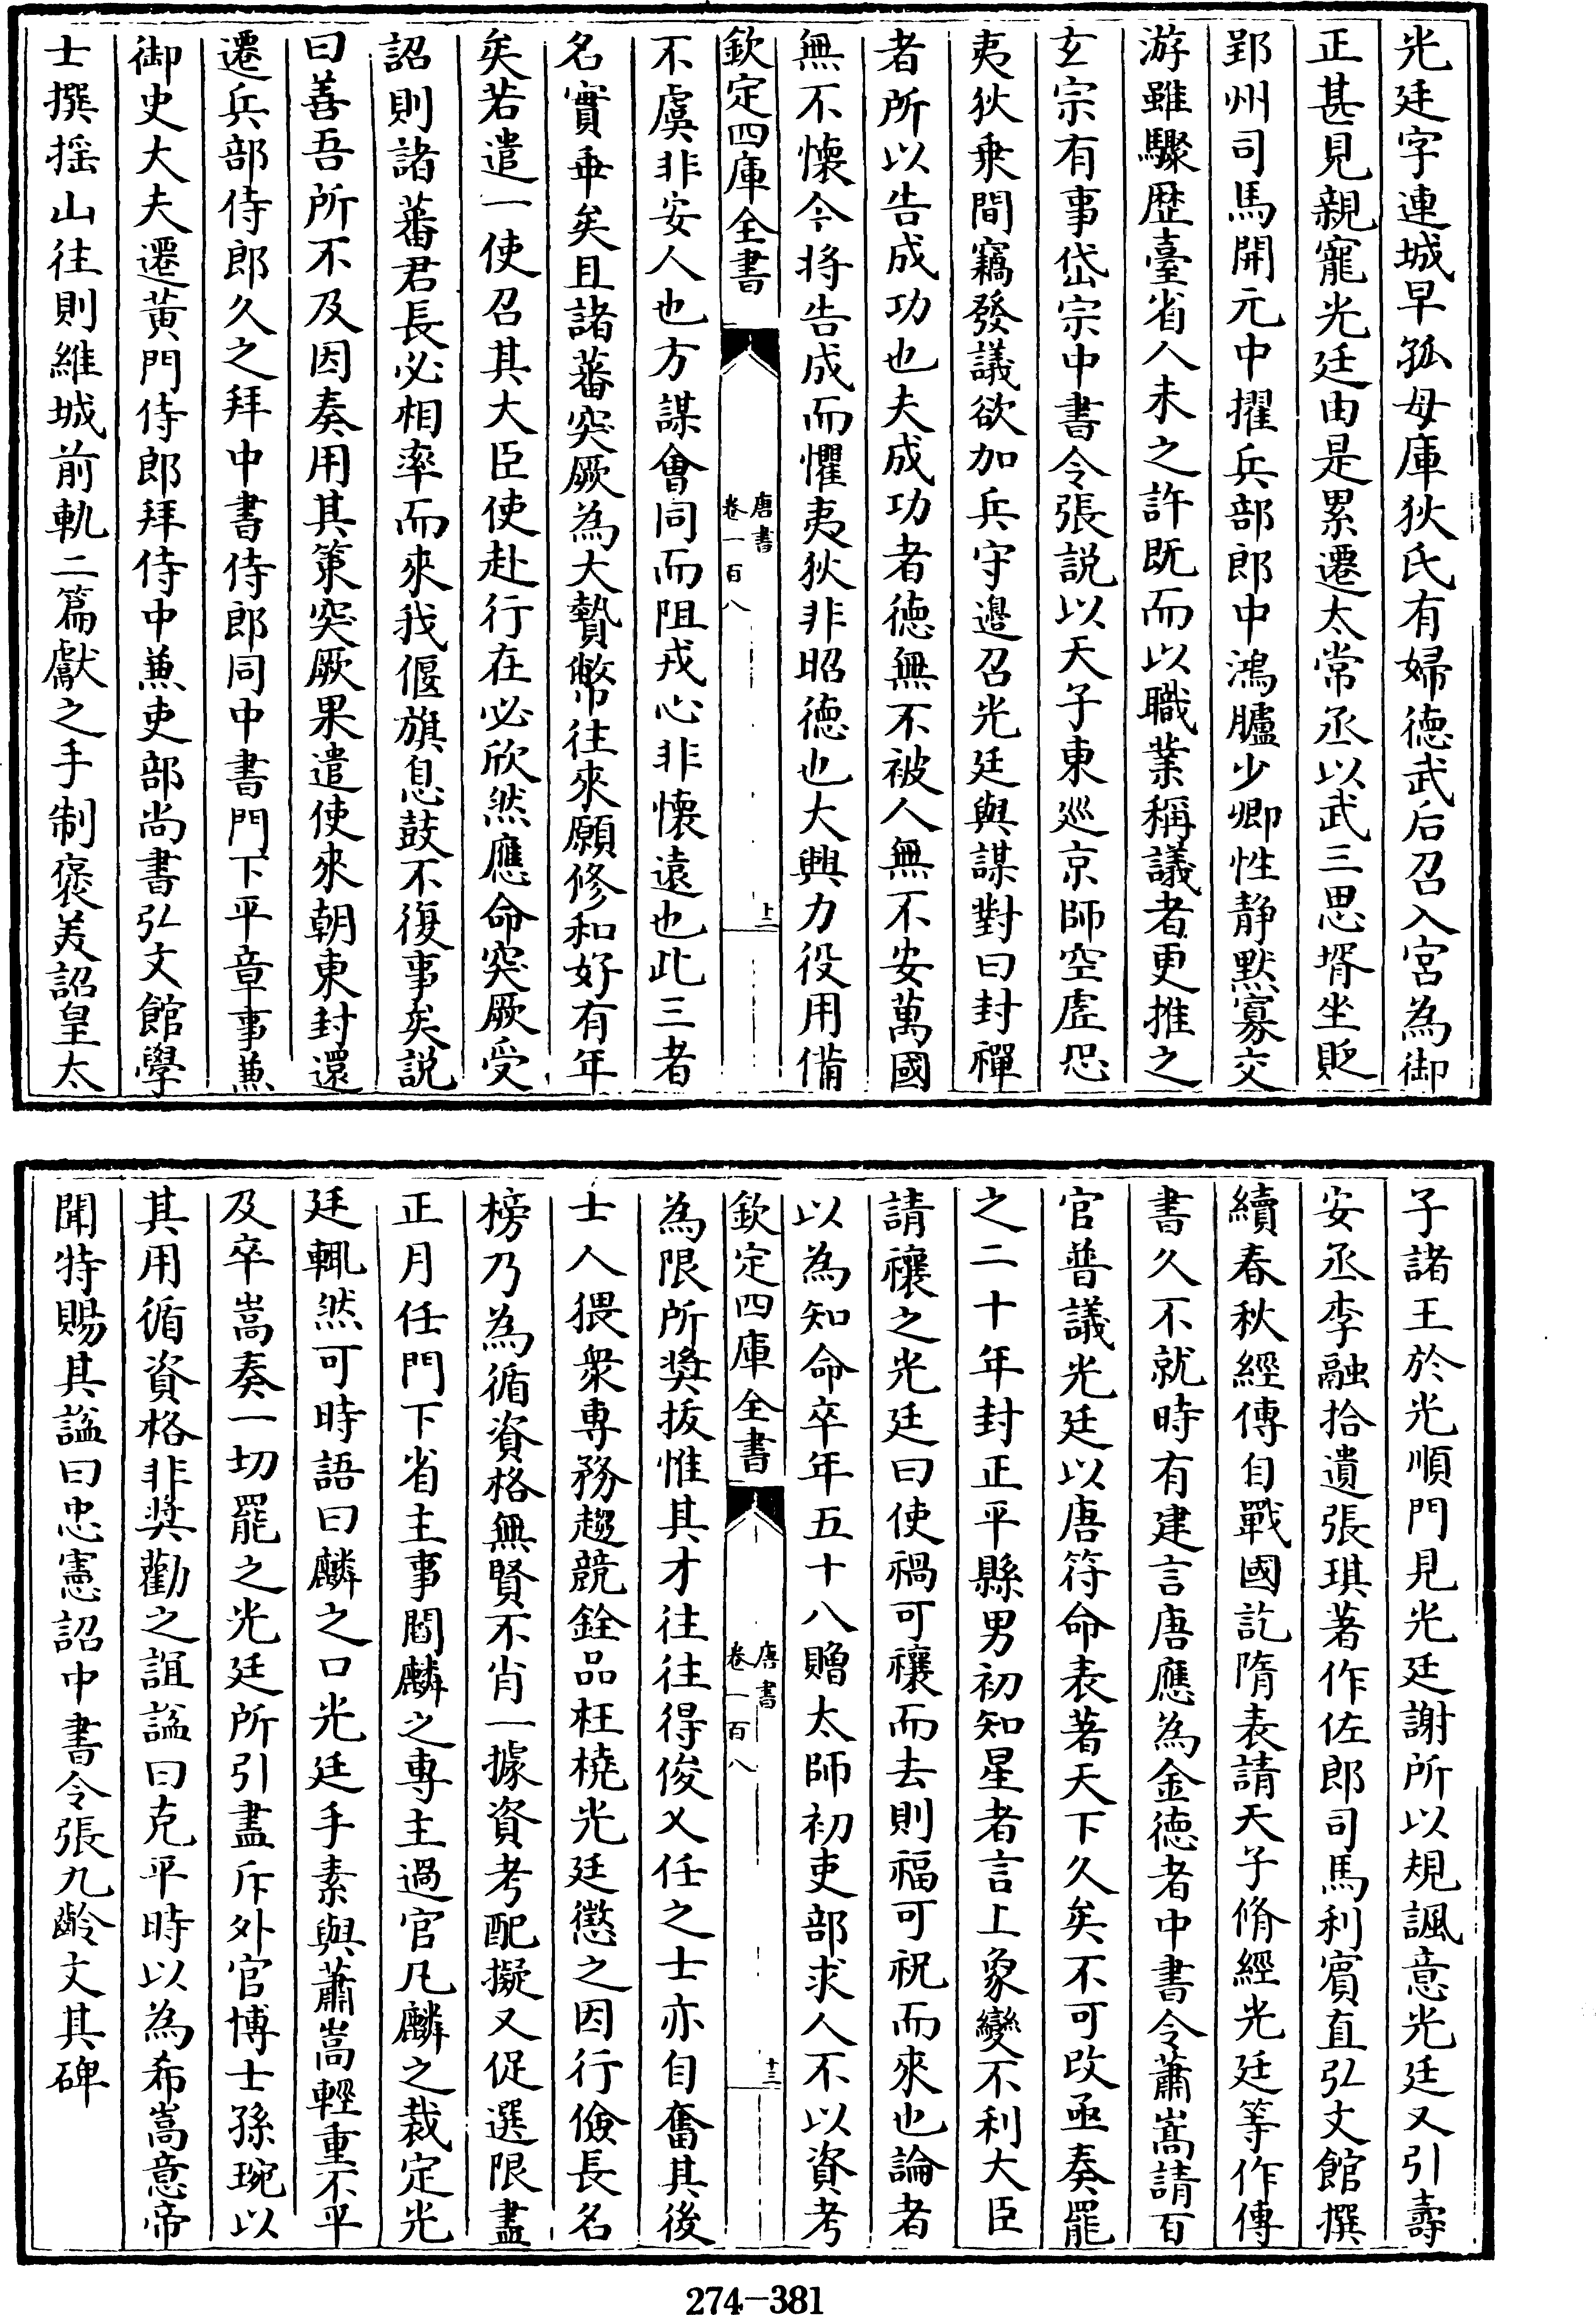 光廷字連城早孤母庫狄氏有婦徳武后召入宮為御
正甚見親寵光廷由是累遷太常丞以武三思壻坐貶
郢州司馬開元中擢兵部郎中鴻臚少卿性静默寡交
游雖驟歴臺省人未之許既而以職業稱議者更推之
玄宗有事岱宗中書令張説以天子東巡京師空虚恐
夷狄乗間竊發議欲加兵守邊召光廷與謀對曰封禪
者所以告成功也夫成功者徳無不被人無不安萬國
無不懷今將告成而懼夷狄非昭徳也大興力役用備
欽定四庫全書
唐書
卷一百八
十二
不虞非安人也方謀會同而阻戎心非懷逺也此三者
名實乖矣且諸蕃突厥為大贄幣往來願修和好有年
矣若遣一使召其大臣使赴行在必欣然應命突厥受
詔則諸蕃君長必相率而來我偃旗息鼓不復事矣説
曰善吾所不及因奏用其策突厥果遣使來朝東封還
遷兵部侍郎久之拜中書侍郎同中書門下平章事兼
御史大夫遷黄門侍郎拜侍中兼吏部尚書弘文館學
士撰揺山往則維城前軌二篇獻之手制褒美詔皇太
子諸王於光順門見光廷謝所以規諷意光廷又引壽
安丞李融拾遺張琪著作佐郎司馬利賓直弘文館撰
續春秋經傳自戰國訖隋表請天子脩經光廷等作傳
書久不就時有建言唐應為金徳者中書令蕭嵩請百
官普議光廷以唐符命表著天下久矣不可改亟奏罷
之二十年封正平縣男初知星者言上象變不利大臣
請禳之光廷曰使禍可禳而去則福可祝而來也論者
以為知命卒年五十八贈太師初吏部求人不以資考
欽定四庫全書
唐書
卷一百八
十三
為限所奬拔惟其才往往得俊乂任之士亦自奮其後
士人猥衆専務趨競銓品枉橈光廷懲之因行儉長名
榜乃為循資格無賢不肖一據資考配擬又促選限盡
正月任門下省主事閻麟之專主過官凡麟之裁定光
廷輒然可時語曰麟之口光廷手素與蕭嵩輕重不平
及卒嵩奏一切罷之光廷所引盡斥外官博士孫琬以
其用循資格非奬勸之誼諡曰克平時以為希嵩意帝
聞特賜其諡曰忠憲詔中書令張九齡文其碑
274-381